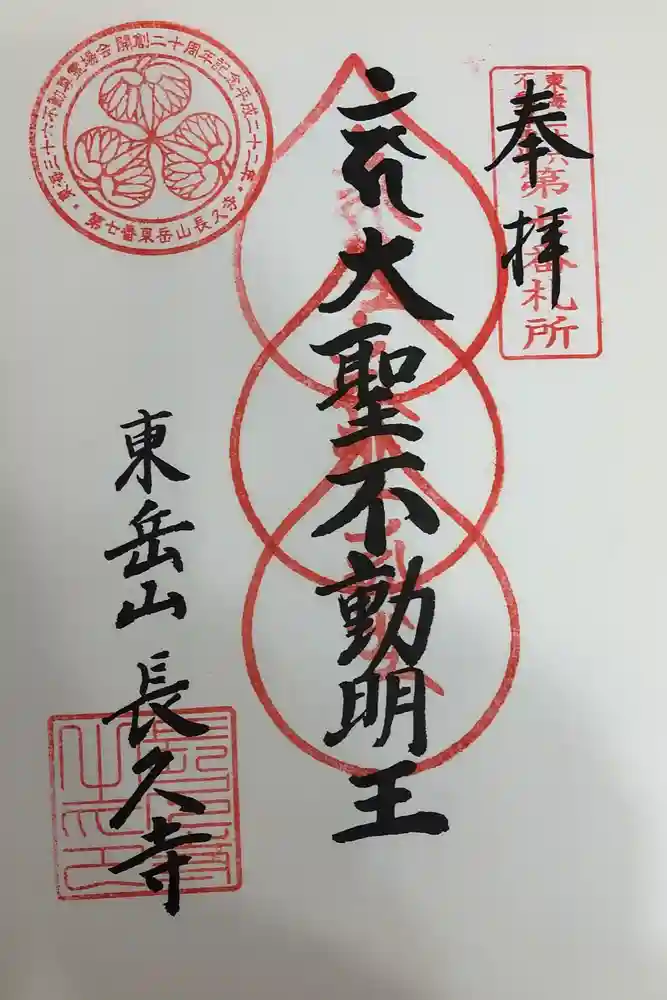 奉拝
東海三十六
不動尊霊場
第七番札所
大聖不動明王
東岳山 長久寺
東海三十六不動尊霊場会 開創二十周年記念平成二十二年
第七番東岳山長久寺